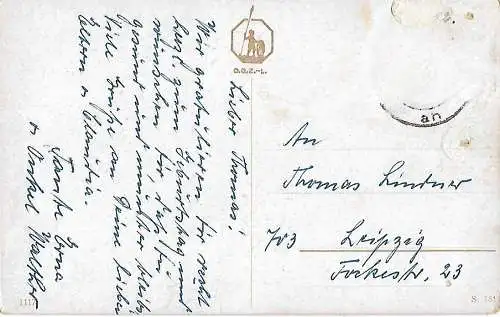 Lieber Thomas!
Wir gratulieren Dir recht
herzl. zum Geburtstag und
wünschen Dir, daß Du
gesund und munter bleibst.
Viele Grüße an Deine lieben
Eltern u. Claudia.
Tante Erna
u. Onkel Walther
O.G.Z.-L.
an
An
Thomas Lindner
703 Leipzig
Fockestr. 23